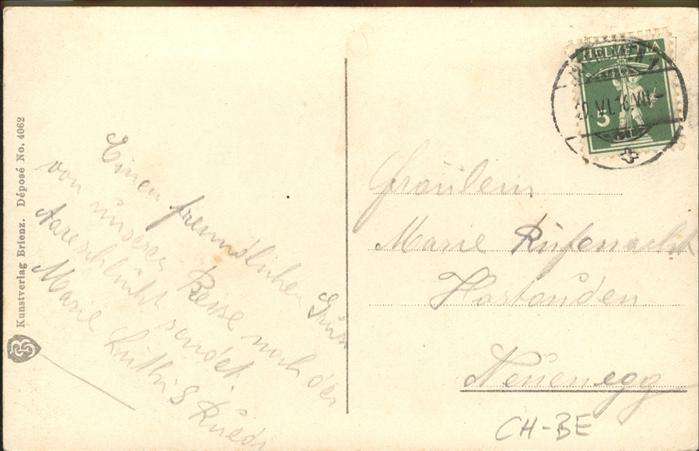 Kunstverlag Brienz. Déposé No. 4062
Einen freundlichen Gruss
von unserer Reise nach der
Aareschlucht sendet.
Marie Lüthi & Ruedi
HELVETIA
5
VI. 16. VIII
Fräulein
Marie Rüfenacht
Neuenegg
CH-BE